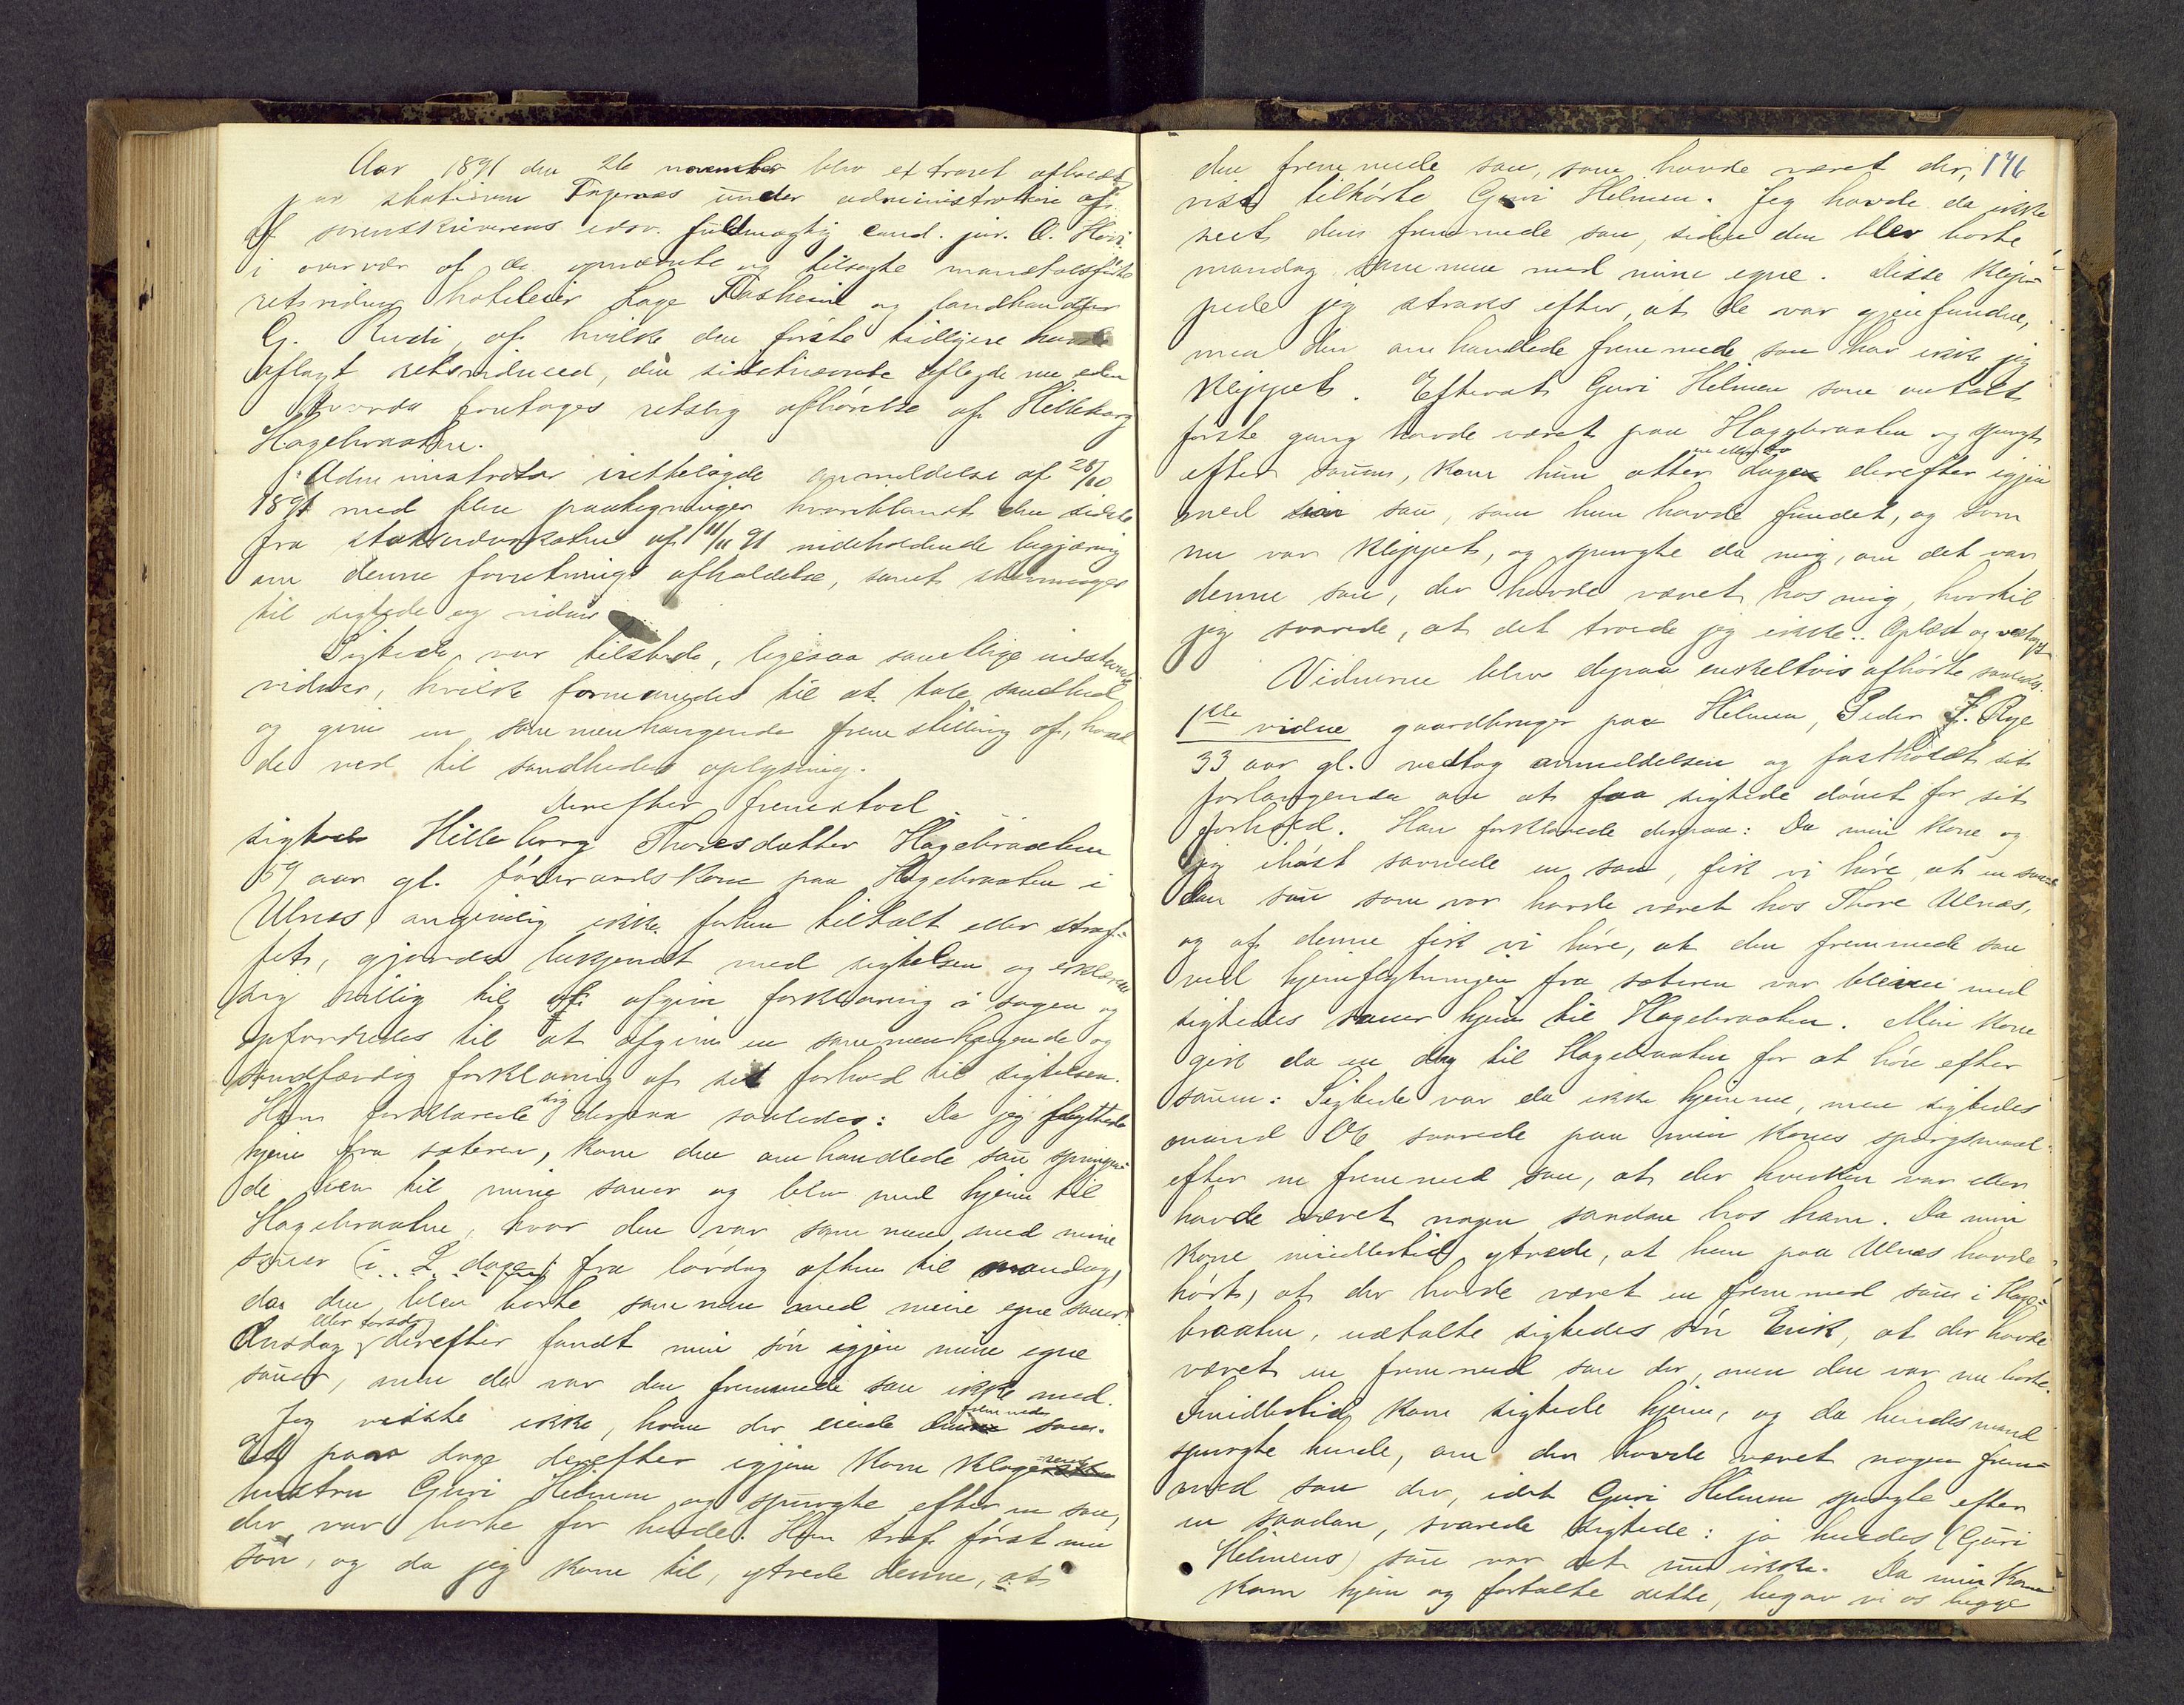 Aar 1891 den 26 november blev extraret afholdt
paa skatinn Fagernæs under administration af
af sorenskriverens edsv. fuldmægtig cand. jur. O. Hovi
i overvær af de opnævnte og tilsagte mandtalsførte
retsvidner hoteleier Lage Fosheim og landhandler
G. Rudi, af hvilke den første tidligere havde
aflagt retsvidneed, den sidstnævnte aflagde nu eden
Hvorda foretages retslig afhørelse af Hilleborg
Hagebraaten.
Administrator irettelagde anmeldelse af 28/10
1891 med flere paategninger hvoriblandt den sidste
fra statsadvokaten af 11/11 91 indeholdende begjæring
om denne forretnings afholdelse, samt stevninger
til sigtede og vidner
Sigtede var tilstede, ligesaa samtlige indstevnte
vidner, hvilke formanedes til at tale sandhed
og give en sammenhængende fremstilling af, hvad
de ved til sandhedens oplysning.
Derefter fremstod
sigtede Hilleborg Thoresdatter Hagebraaten
59 aar gl. føderaadskone paa Hagebraaten i
Ulnæs angivelig ikke forhen tiltalt eller straf=
fet, gjordes bekjendt med sigtelsen og erklærede
sig villig til at afgive forklaring i sagen og
opfordredes til at afgive en sammenhængende og
sandfærdig forklaring af sit forhold til sigtelsen.
Hun forklarede sig derpaa saaledes: Da jeg flyttede
hjem fra sæteren, kom den omhandlede sau springen=
de hen til mine sauer og blev med hjem til
Hagebraaten, hvor den var sammen med mine
sauer (i 2 dage) fra lørdag aften til mandag,
da den blev borte sammen med mine egne sauer.
Onsdag eller torsdag derefter fandt min søn igjen mine egne
sauer, men da var den fremmede sau ikke med.
Jeg vidste ikke, hvem der eiede denne fremmede sau.
Et par dage derefter igjen kom klagerens
hustru Guri Helmen og spurgte efter en sau,
der var borte for hende. Hun traf først min
søn, og da jeg kom til, ytrede denne, at
den fremmede sau, som havde været der, 176
vist tilhørte Guri Helmen. Jeg havde da ikke
seet den fremmede sau, siden den blev borte
mandag sammen med mine egne. Disse klip=
pede jeg straks efter, at de var gjenfundne,
men den omhandlede fremmede sau har ikke jeg
klippet. Efterat Guri Helmen som omtalt
første gang havde været paa Hagebraaten og spurgt
efter sauen, kom hun otter dage derefter igjen
med sin sau, som hun havde fundet, og som
nu var klippet, og spurgte da mig, om det var
denne sau, der havde været hos mig, hvortil
jeg svarede, at det troede jeg ikke. Oplæst og vedtaget
Vidnerne blev derpaa enkeltvis afhørte saaledes.
1ste vidne gaardbruger paa Helmen, Peder J. Rye
33 aar gl. vedtog anmeldelsen og fastholdt sit
forlangende om at faa sigtede dømt for sit
forhold. Han forklarede derpaa: Da min kone og
jeg ihøst savnede en sau, fik vi høre, at en saa=
dan sau som vor havde været hos Thore Ulnæs,
og af denne fik vi høre, at den fremmede sau
ved hjemflytningen fra sæteren var bleven med
sigtedes sauer hjem til Hagebraaten. Min kone
gik da en dag til Hagebraaten for at høre efter
sauen: Sigtede var da ikke hjemme, men sigtedes
mand Ole svarede paa min kones spørgsmaal
efter en fremmed sau, at der hverken var eller
havde været nogen saadan hos ham. Da min
kone imidlertid ytrede, at hun paa Ulnæs havde
hørt, at der havde været en fremmed sau i Hage=
braaten, udtalte sigtedes søn Erik, at der havde
været en fremmed sau der, men den var nu borte.
Imidlertid kom sigtede hjem, og da hendes mand
spurgte hende, om der havde været nogen frem=
med sau der, idet Guri Helmen spurgte efter
en saadan, svarede sigtede: ja hendes (Guri
Helmens) sau var det nu ikke. Da min kone
kom hjem og fortalte dette, begav vi os begge